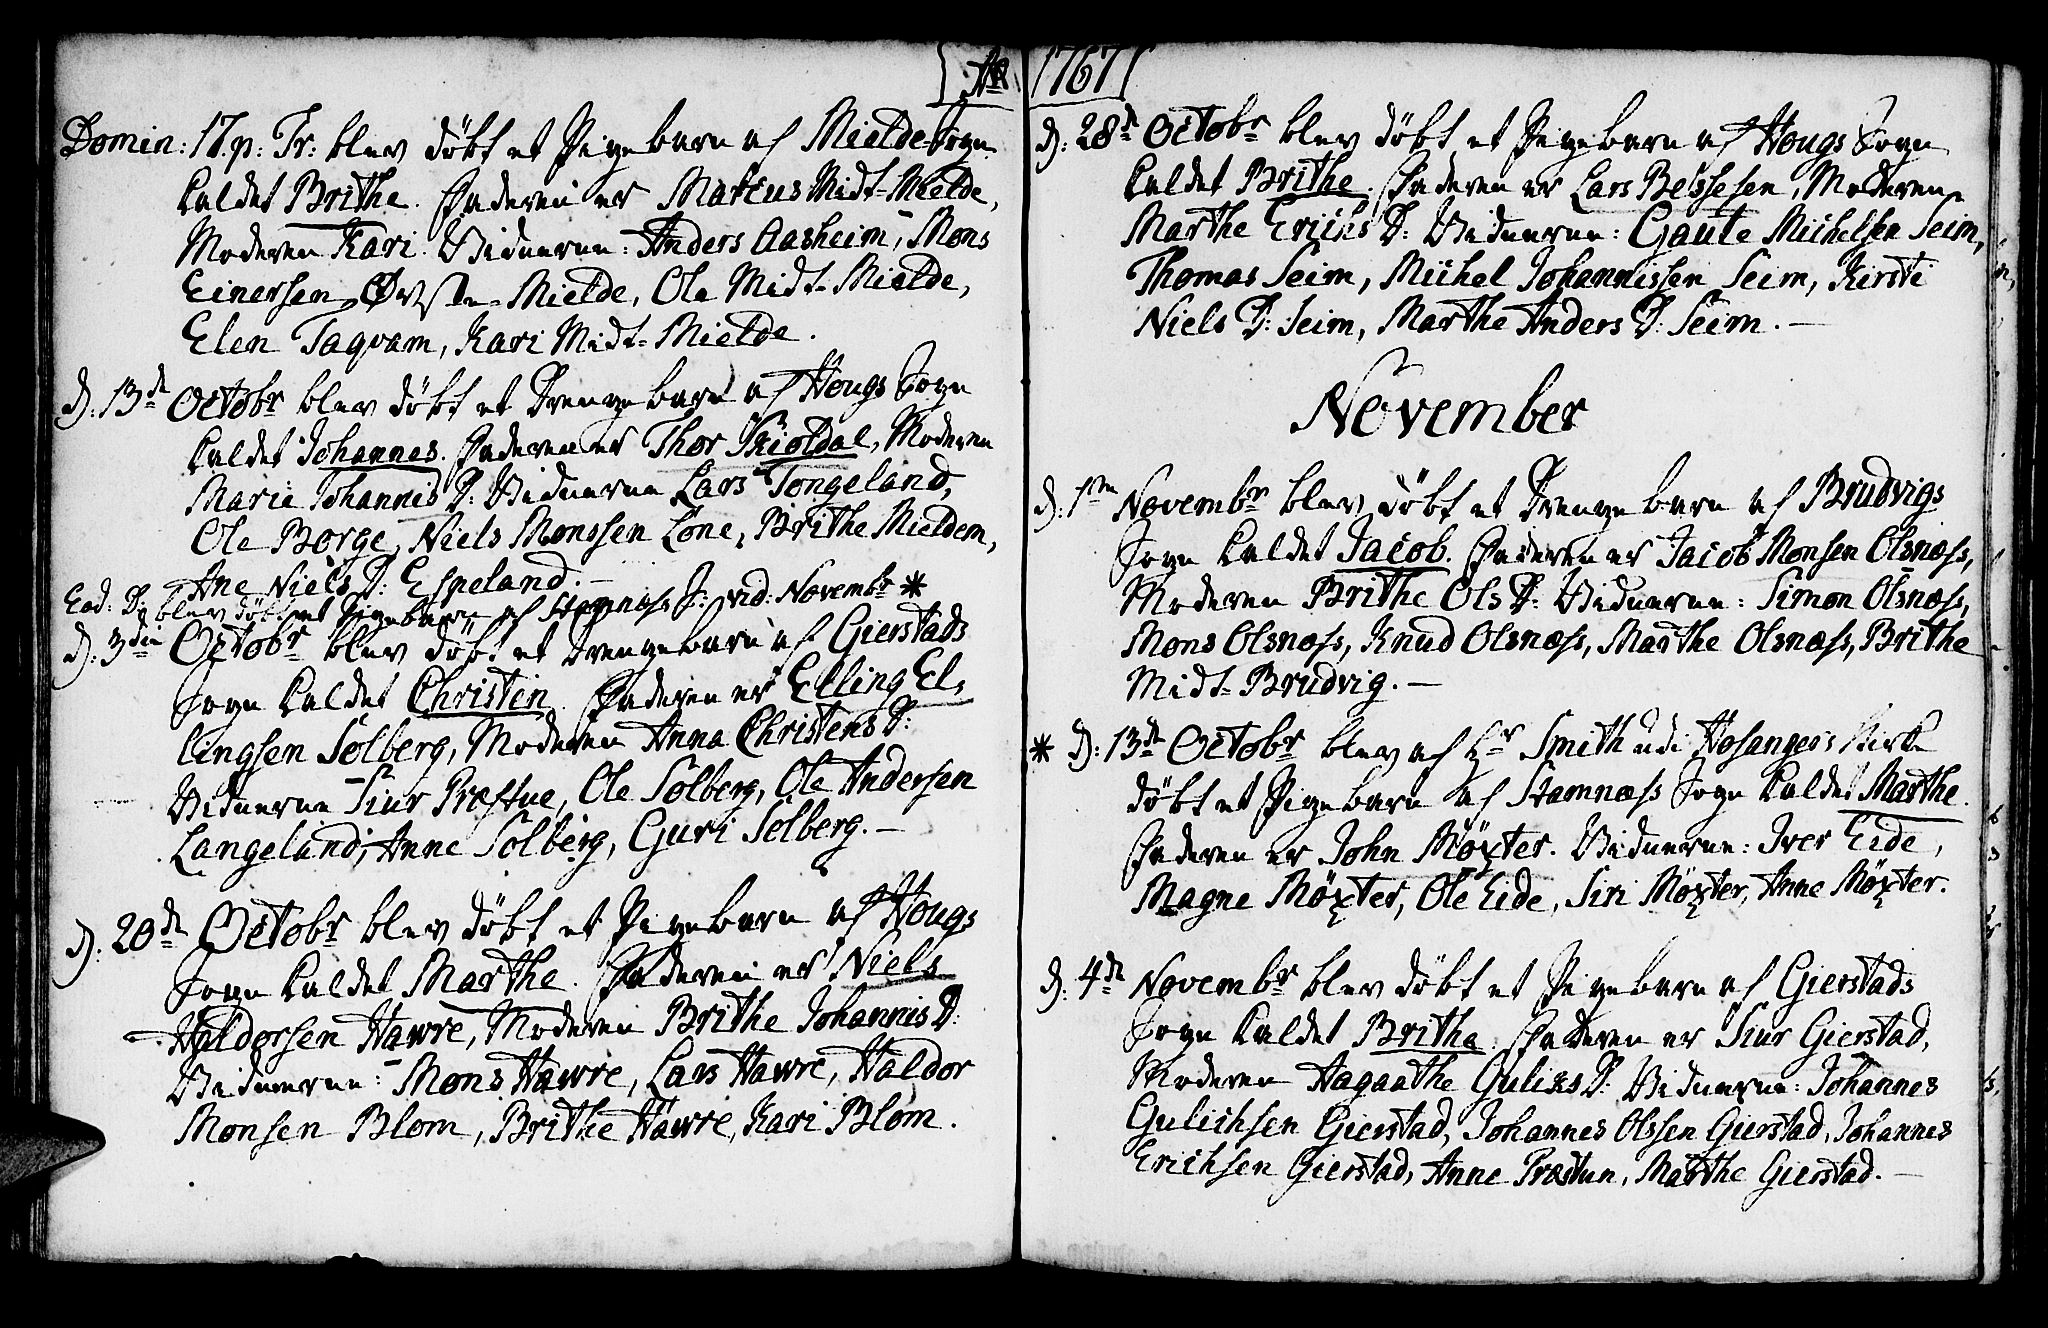 Ao 1767
Domin: 17. p: Tr: blev döbt et Pigebarn af Mielde Sogn
kaldet Brithe. Faderen er Marcus Midt-Mielde,
Moderen Kari. Vidnerne: Anders Aasheim, Mons
Einersen Øvste-Mielde, Ole Midt-Mielde,
Elen Taqvam, Kari Midt-Mielde.
d: 13de Octobr blev döbt et Drengebarn af Hougs Sogn
kaldet Johannes. Faderen er Thor Skioldal, Moderen
Marie Johannis D: Vidnerne Lars Tongeland,
Ole Borge, Niels Monssen Lone, Brithe Mieldem,
Ane Niels D: Espeland. –
Eod: D: blev döbt et Pigebarn af Stamnæss S: vid: Novembr *
d: 3die Octobr blev döbt et Drengebarn af Gierstads
Sogn kaldet Christen. Faderen er Elling El-
lingsen Solberg, Moderen Anna Christens D:
Vidnerne Siur Præstue, Ole Solberg, Ole Andersen
Langeland, Anne Solberg, Guri Solberg. –
d: 20de Octobr blev döbt et Pigebarn af Hougs
Sogn kaldet Marthe. Faderen er Niels
Haldorsen Hawre, Moderen Brithe Johannis D:
Vidnerne: Mons Hawre, Lars Hawre, Haldor
Monsen Blom, Brithe Hawre, Kari Blom.
d: 28de Octobr blev döbt et Pigebarn af Hougs Sogn
kaldet Brithe. Faderen er Lars Belssesen, Moderen
Marthe Erichs D: Vidnerne: Gaute Michelsen Seim,
Thomas Seim, Michel Johannissen Seim, Kirsti
Niels D: Seim, Marthe Anders D: Seim. –
November
d: 1m Novembr blev döbt et Drengebarn af Brudvigs
Sogn kaldet Jacob. Faderen er Jacob Monsen Olsnæss,
Moderen Brithe Ols D: Vidnerne: Simon Olsnæss,
Mons Olsnæss, Knud Olsnæss, Marthe Olsnæss, Brithe
Midt-Brudvig. –
* d: 13de Octobr blev af Hr Smith udi Hosangers Kirke
döbt et Pigebarn af Stamnæss Sogn kaldet Marthe.
Faderen er John Möxter. Vidnerne: Iver Eide,
Magne Möxter, Ole Eide, Siri Möxter, Anne Möxter.
d: 4de Novembr blev döbt et Pigebarn af Gierstads
Sogn kaldet Brithe. Faderen er Siur Gierstad,
Moderen Aagaathe Gulixs D: Vidnerne: Johannes
Gulichsen Gierstad, Johannes Olssen Gierstad, Johannes
Erichsen Gierstad, Anne Præstun, Marthe Gierstad. –